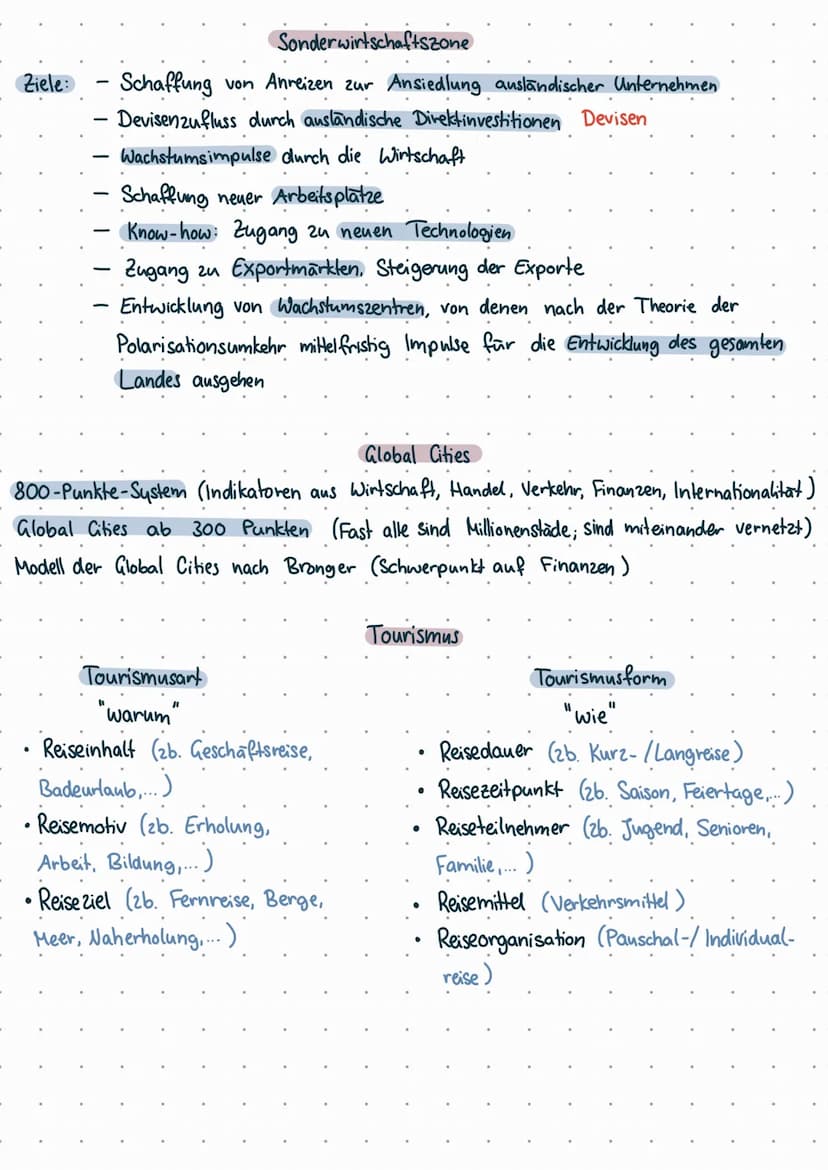 Sonderwirtschaftszone
Ziele: – Schaffung von Anreizen zur Ansiedlung ausländischer Unternehmen
– Devisenzufluss durch ausländische Direktinvestitionen Devisen
– Wachstumsimpulse durch die Wirtschaft
– Schaffung neuer Arbeitsplätze
– Know-how: Zugang zu neuen Technologien
– Zugang zu Exportmärkten, Steigerung der Exporte
– Entwicklung von Wachstumszentren, von denen nach der Theorie der
Polarisationsumkehr mittelfristig Impulse für die Entwicklung des gesamten
Landes ausgehen
Global Cities
800-Punkte-System (Indikatoren aus Wirtschaft, Handel, Verkehr, Finanzen, Internationalität)
Global Cities ab 300 Punkten (Fast alle sind Millionenstäde; sind miteinander vernetzt)
Modell der Global Cities nach Bronger (Schwerpunkt auf Finanzen)
Tourismus
Tourismusart
"warum"
• Reiseinhalt (zb. Geschäftsreise,
Badeurlaub,...)
• Reisemotiv (zb. Erholung,
Arbeit, Bildung,...)
• Reiseziel (zb. Fernreise, Berge,
Meer, Naherholung,...)
Tourismusform
"wie"
• Reisedauer (zb. Kurz-/Langreise)
• Reisezeitpunkt (zb. Saison, Feiertage,...)
• Reiseteilnehmer (zb. Jugend, Senioren,
Familie,...)
• Reisemittel (Verkehrsmittel)
• Reiseorganisation (Pauschal-/Individual-
reise)